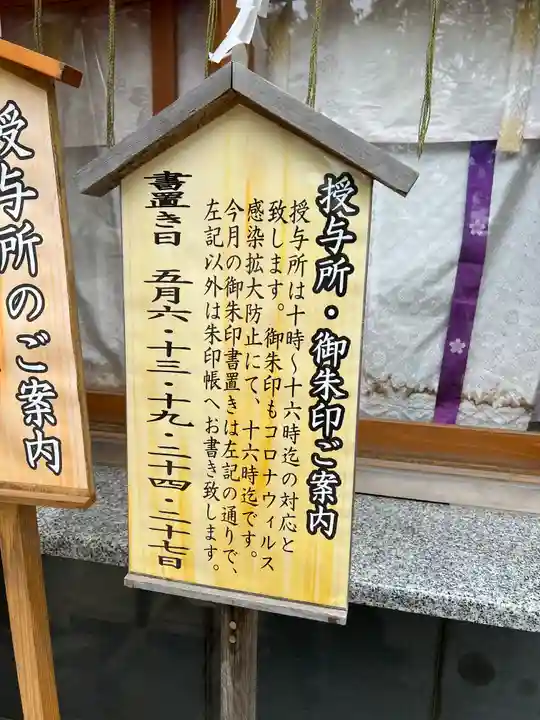 授与所・御朱印ご案内
授与所は十時～十六時迄の対応と
致します。御朱印もコロナウィルス
感染拡大防止にて、十六時迄です。
今月の御朱印書置きは左記の通りで、
左記以外は朱印帳へお書き致します。
書置き日 五月六・十三・十九・二十四・二十七日
授与所のご案内